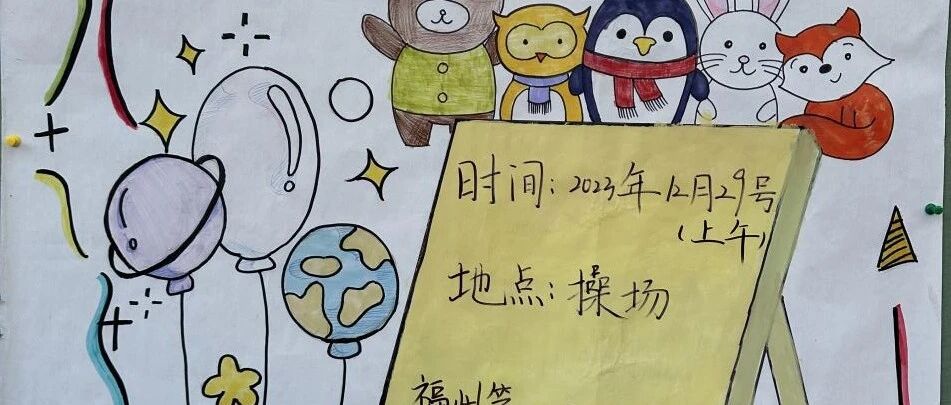 时间：2023年12月29号
（上午）
地点：操场
福州